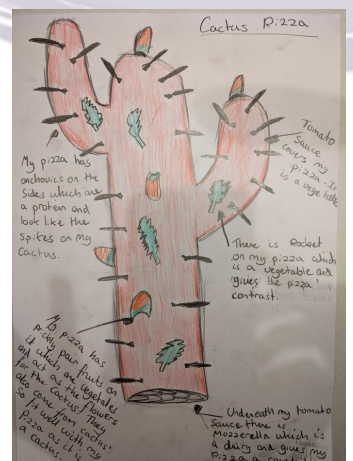 Cactus Pizza
My pizza has
anchovies on the
sides which are
a protein and
look like the
spikes on my
cactus.
Tomato
sauce
covers my
pizza. It
is a vegetable
There is Rocket
on my pizza which
is a vegetable and
gives the pizza
contrast.
My pizza has
prickly pear fruits on
it which are vegetables
and act as the flowers
for the cactus! They
also come from cactus.
So fit well with my
pizza as it is
a cactus.
Underneath my tomato
sauce there is
Mozzerella which is
a dairy and gives my